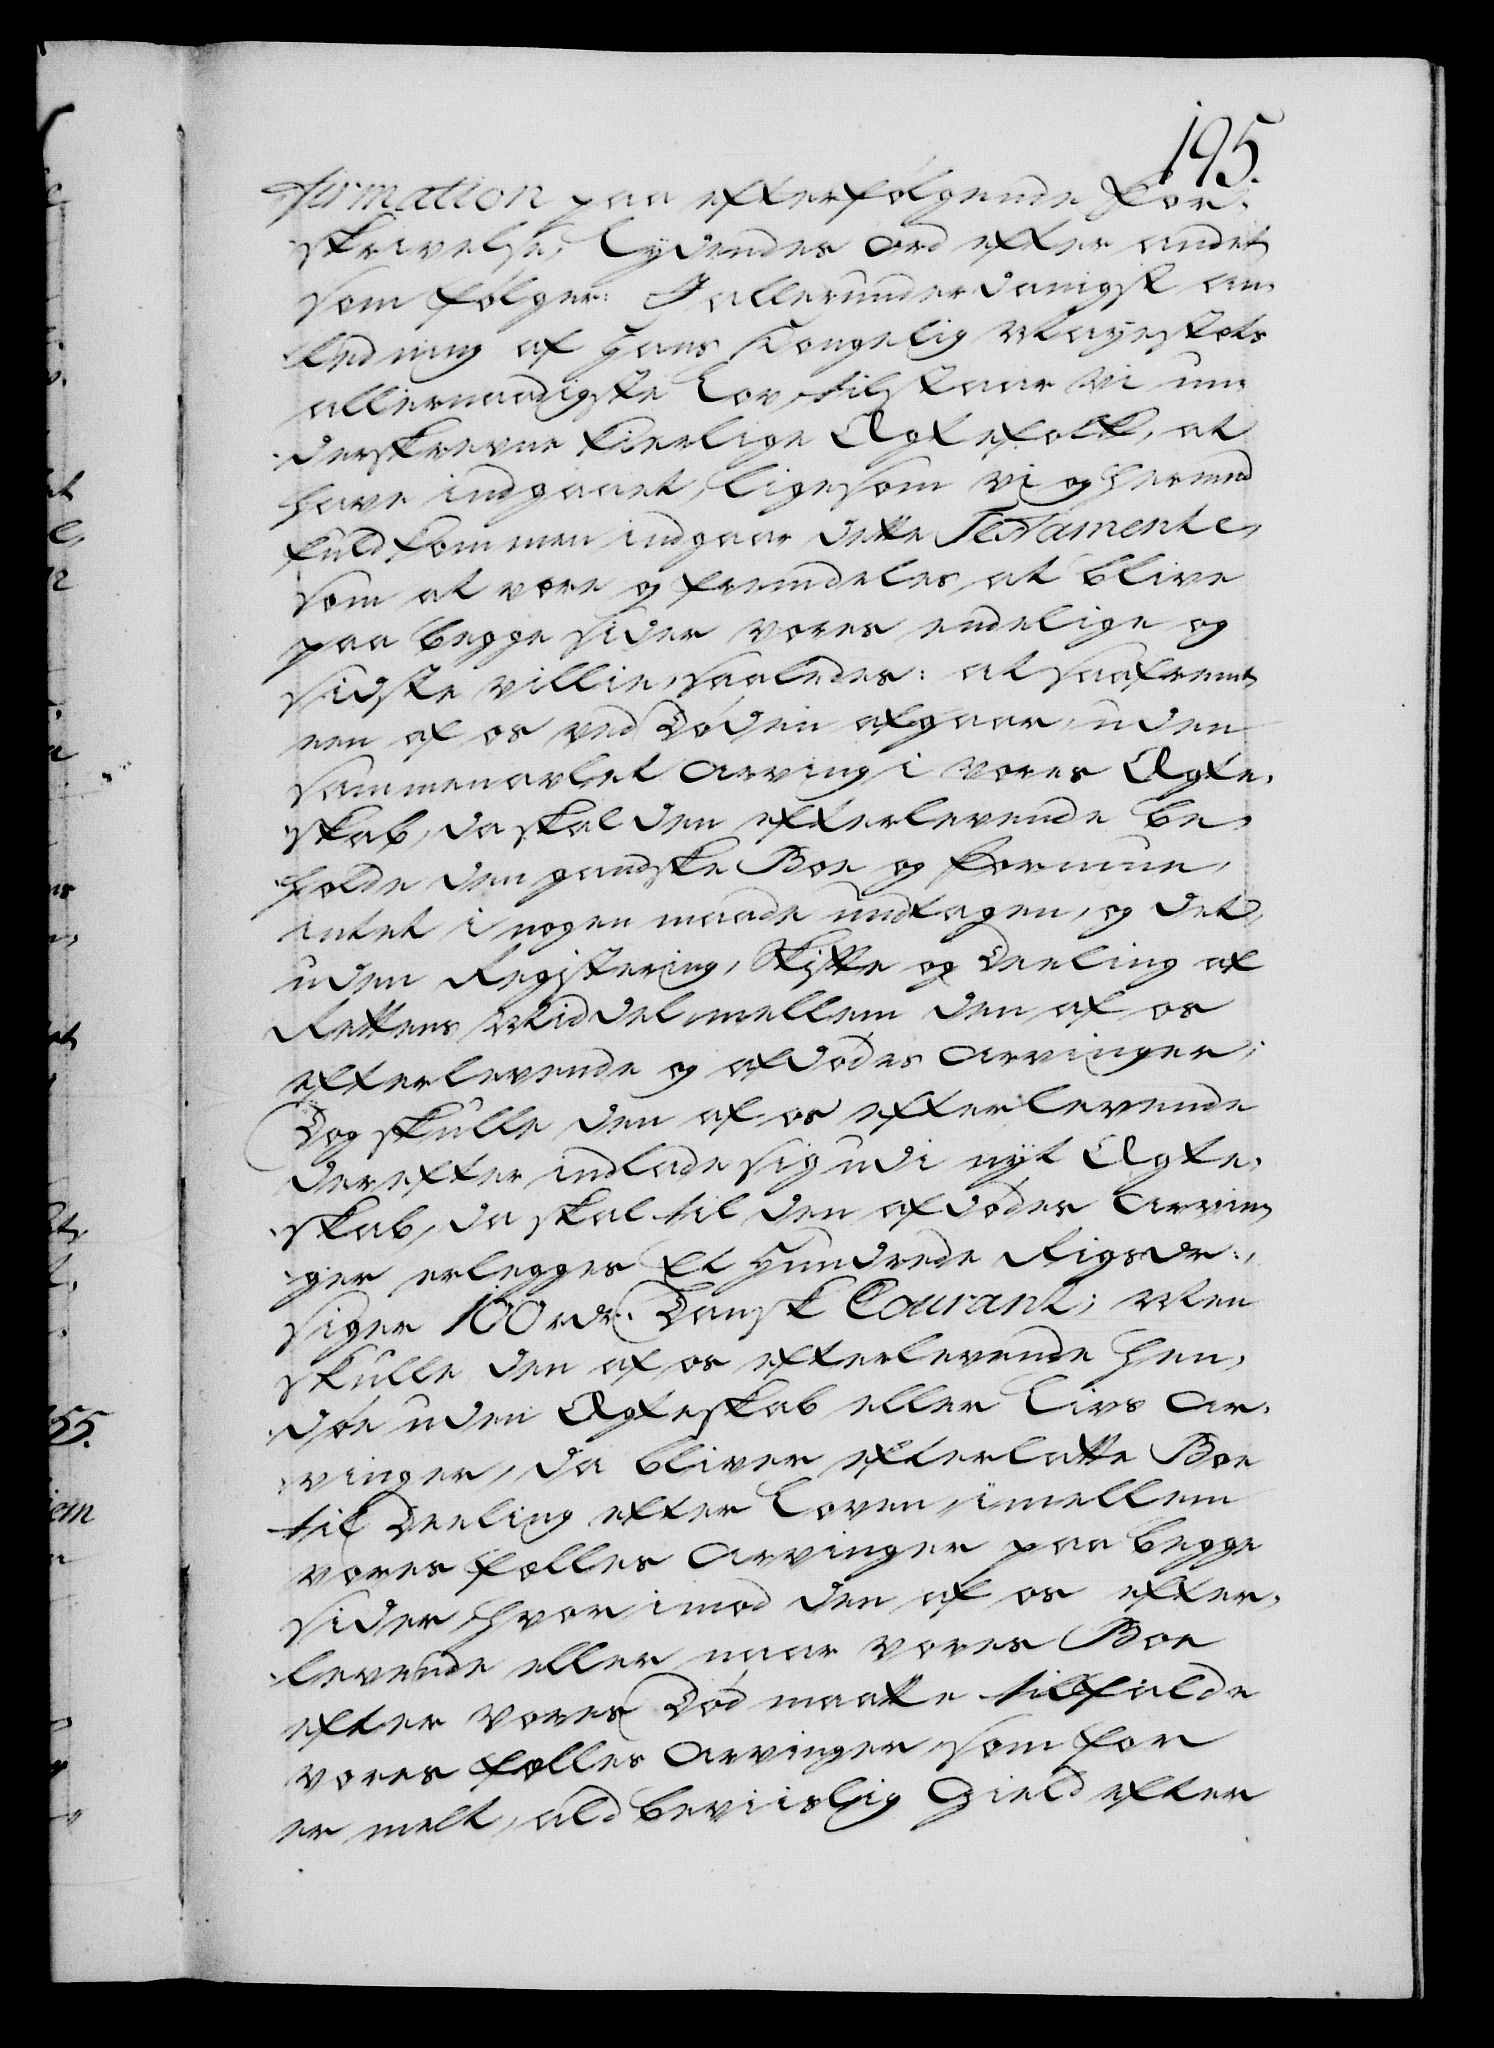 195.
firmation paa efterfølgende For-
skrivelse, lydendes ord efter andet
som følger: I allerunderdanigst an-
ledning af Hans Kongelig Mayestets
allernaadigste Lov, tilstaar Vi un-
derskrevne kierlige Ægtefolk, at
have indgaaet, ligesom vi og hermed
fuldkommen indgaar dette Testamente,
som at være og fremdeles at blive
paa begge sider vores endelige og
sidste villie, saaledes: at saafremt
een af os ved Døden afgaar uden
sammenavlet Arving i vores Ægte-
skab, da skal den efterlevende be-
holde den gandske Boe og formue,
intet i nogen maade undtagen, og det,
uden Registering, Skifte og Deeling af
Rettens Middel mellem den af os
efterlevende og afdødes Arvinger;
Dog skulle den af os efterlevende
derefter indlade sig udi nyt Ægte-
skab, da skal til den afdødes Arvin-
ger erlegges Et Hundrede Rigsdr:,
siger 100 rdr. Dansk Courant; Men
skulle den af os efterlevende hen-
døe uden Ægteskab eller Livs Ar-
vinger, da bliver efterlatte Boe
til Deeling efter Loven, imellem
vores fælles Arvinger paa begge
sider, hvorimod den af os efter-
levende eller naar vores Boe
efter vores Død maatte tilfalde
vores fælles Arvinger, som for
er melt, ald beviislig Gield efter